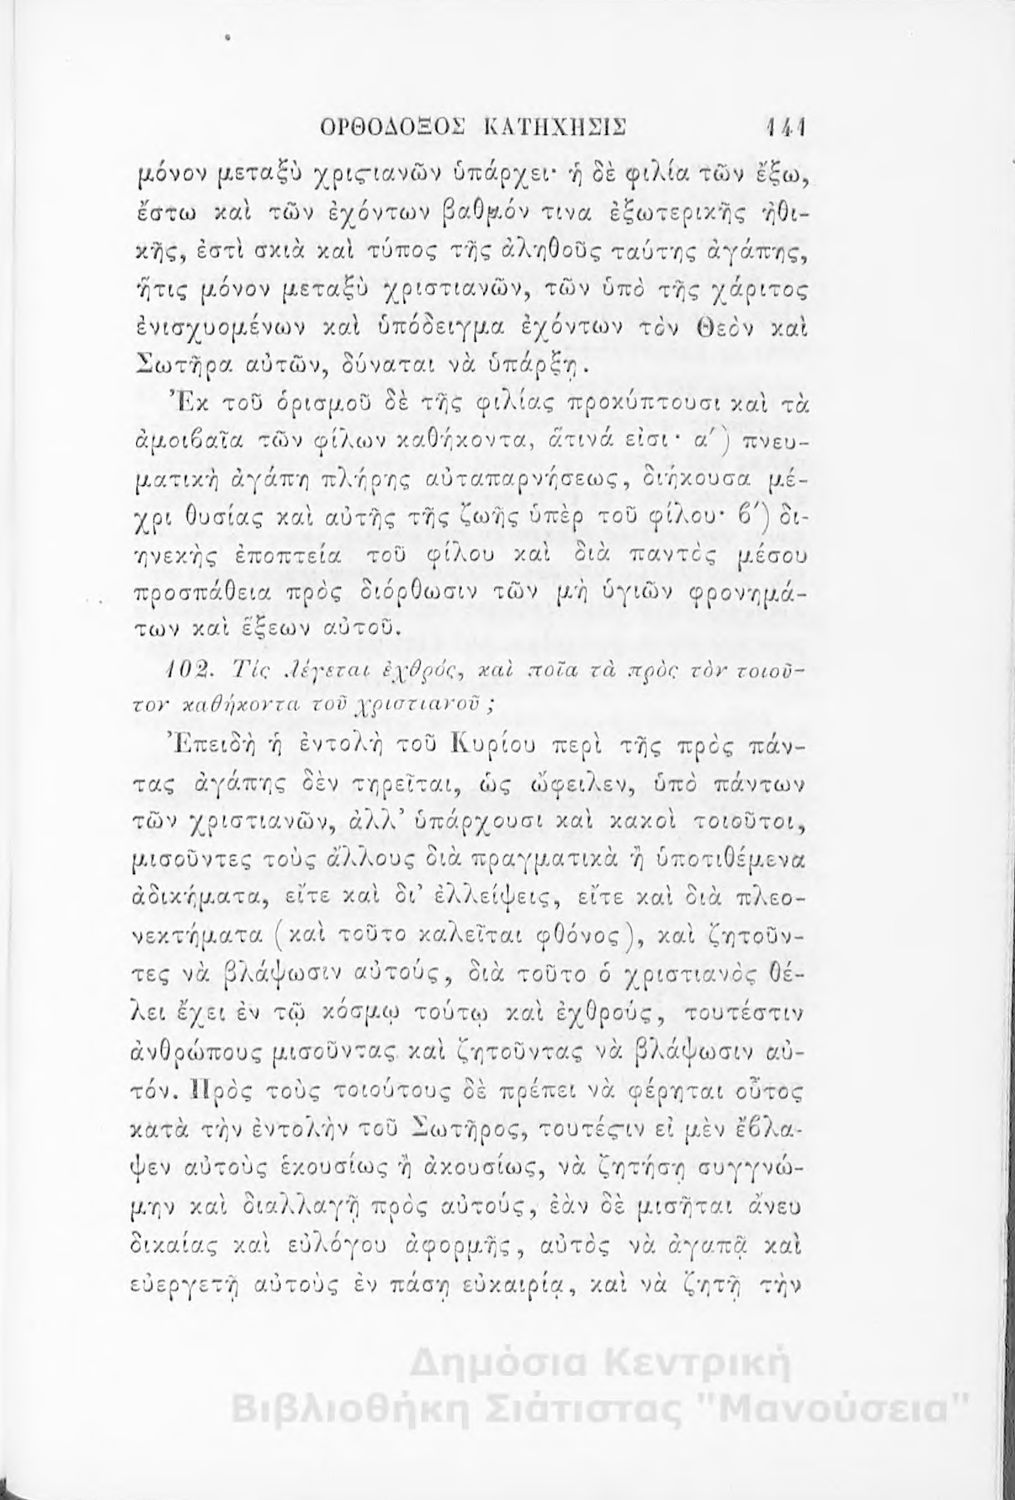 ΟΡΘΟΔΟΞΟΣ ΚΑΤΗΧΗΣΙΣ 141
μόνον μεταξὺ χριϛιανῶν ὑπάρχει· ἡ δὲ φιλία τῶν ἔξω,
ἔστω καὶ τῶν ἐχόντων βαθμόν τινα ἐξωτερικῆς ἠθι-
κῆς, ἐστὶ σκιὰ καὶ τύπος τῆς ἀληθοῦς ταύτης ἀγάπης,
ἥτις μόνον μεταξὺ χριστιανῶν, τῶν ὑπὸ τῆς χάριτος
ἐνισχυομένων καὶ ὑπόδειγμα ἐχόντων τὸν Θεὸν καὶ
Σωτῆρα αὐτῶν, δύναται νὰ ὑπάρξῃ.
Ἐκ τοῦ ὁρισμοῦ δὲ τῆς φιλίας προκύπτουσι καὶ τὰ
ἀμοιϐαῖα τῶν φίλων καθήκοντα, ἅτινά εἰσι· α′) πνευ-
ματικὴ ἀγάπη πλήρης αὐταπαρνήσεως, διήκουσα μέ-
χρι θυσίας καὶ αὐτῆς τῆς ζωῆς ὑπὲρ τοῦ φίλου· ϐ′) δι-
ηνεκὴς ἐποπτεία τοῦ φίλου καὶ διὰ παντὸς μέσου
προσπάθεια πρὸς διόρθωσιν τῶν μὴ ὑγιῶν φρονημά-
των καὶ ἕξεων αὐτοῦ.
102. Τίς λέγεται ἐχθρός, καὶ ποῖα τὰ πρὸς τὸν τοιοῦ-
τον καθήκοντα τοῦ χριστιανοῦ ;
Ἐπειδὴ ἡ ἐντολὴ τοῦ Κυρίου περὶ τῆς πρὸς πάν-
τας ἀγάπης δὲν τηρεῖται, ὡς ὤφειλεν, ὑπὸ πάντων
τῶν χριστιανῶν, ἀλλ’ ὑπάρχουσι καὶ κακοὶ τοιοῦτοι,
μισοῦντες τοὺς ἄλλους διὰ πραγματικὰ ἢ ὑποτιθέμενα
ἀδικήματα, εἴτε καὶ δι’ ἐλλείψεις, εἴτε καὶ διὰ πλεο-
νεκτήματα (καὶ τοῦτο καλεῖται φθόνος), καὶ ζητοῦν-
τες νὰ βλάψωσιν αὐτούς, διὰ τοῦτο ὁ χριστιανὸς θέ-
λει ἔχει ἐν τῷ κόσμῳ τούτῳ καὶ ἐχθρούς, τουτέστιν
ἀνθρώπους μισοῦντας καὶ ζητοῦντας νὰ βλάψωσιν αὐ-
τόν. Πρὸς τοὺς τοιούτους δὲ πρέπει νὰ φέρηται οὗτος
κατὰ τὴν ἐντολὴν τοῦ Σωτῆρος, τουτέϛιν εἰ μὲν ἔϐλα-
ψεν αὐτοὺς ἑκουσίως ἢ ἀκουσίως, νὰ ζητήσῃ συγγνώ-
μην καὶ διαλλαγῇ πρὸς αὐτούς, ἐὰν δὲ μισῆται ἄνευ
δικαίας καὶ εὐλόγου ἀφορμῆς, αὐτὸς νὰ ἀγαπᾷ καὶ
εὐεργετῇ αὐτοὺς ἐν πάσῃ εὐκαιρίᾳ, καὶ νὰ ζητῇ τὴν
Δημόσια Κεντρική
Βιβλιοθήκη Σιάτιστας "Μανούσεια"